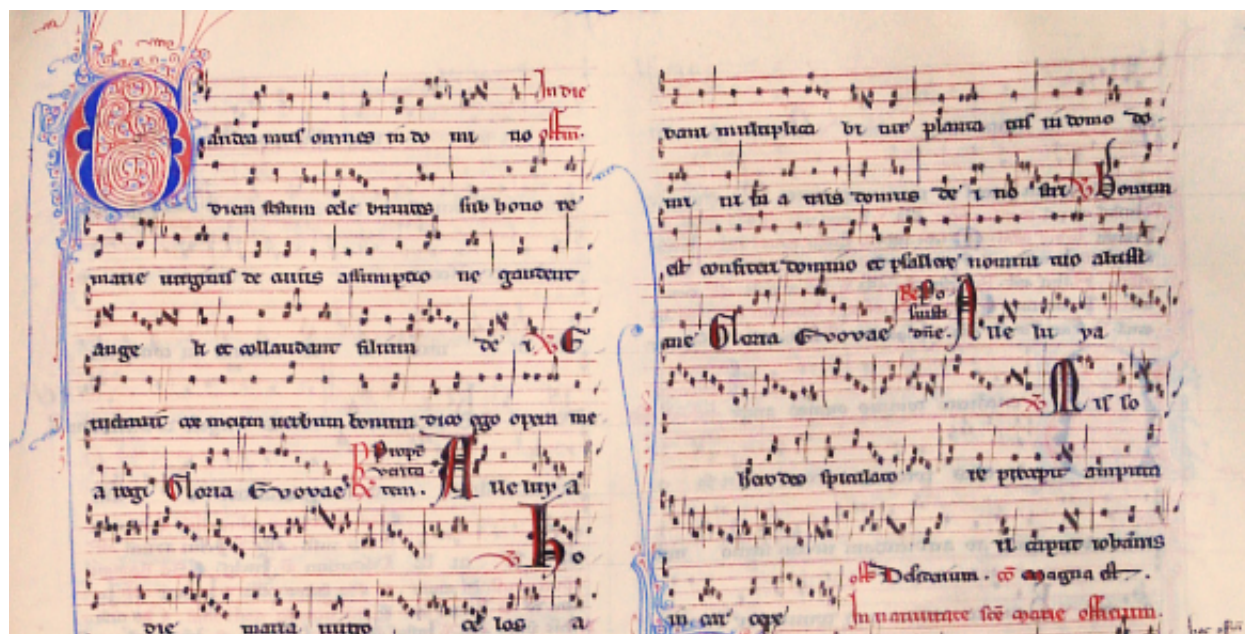 In die
Gaudea mus omnes in do mi no offm̄.
diem festum cele brantes sub hono re
marie virginis de cuius assumptio ne gaudent
ange li et collaudant filium de i ℣ E
ructauit cor meum uerbum bonum dico ego opera me
a regi Gloria Evovae ℟ Propt̄ verita tem. Alle luy a
℣ Ho
die maria uirgo ce los a
dani multiplica bi tur planta tus in domo do
mi ni in a triis domus de i no stri ℣ Bonum
est confiteri domino et psallere nomini tuo altissi
me Gloria Evovae ℟ Po suisti dn̄e. Alle lu ya
℣ Mis so
herodes spiculato re precepit amputa
ri caput iohānis
in car cere
off Desiderium. cō magna est.
In natiuitate scē marie officium.